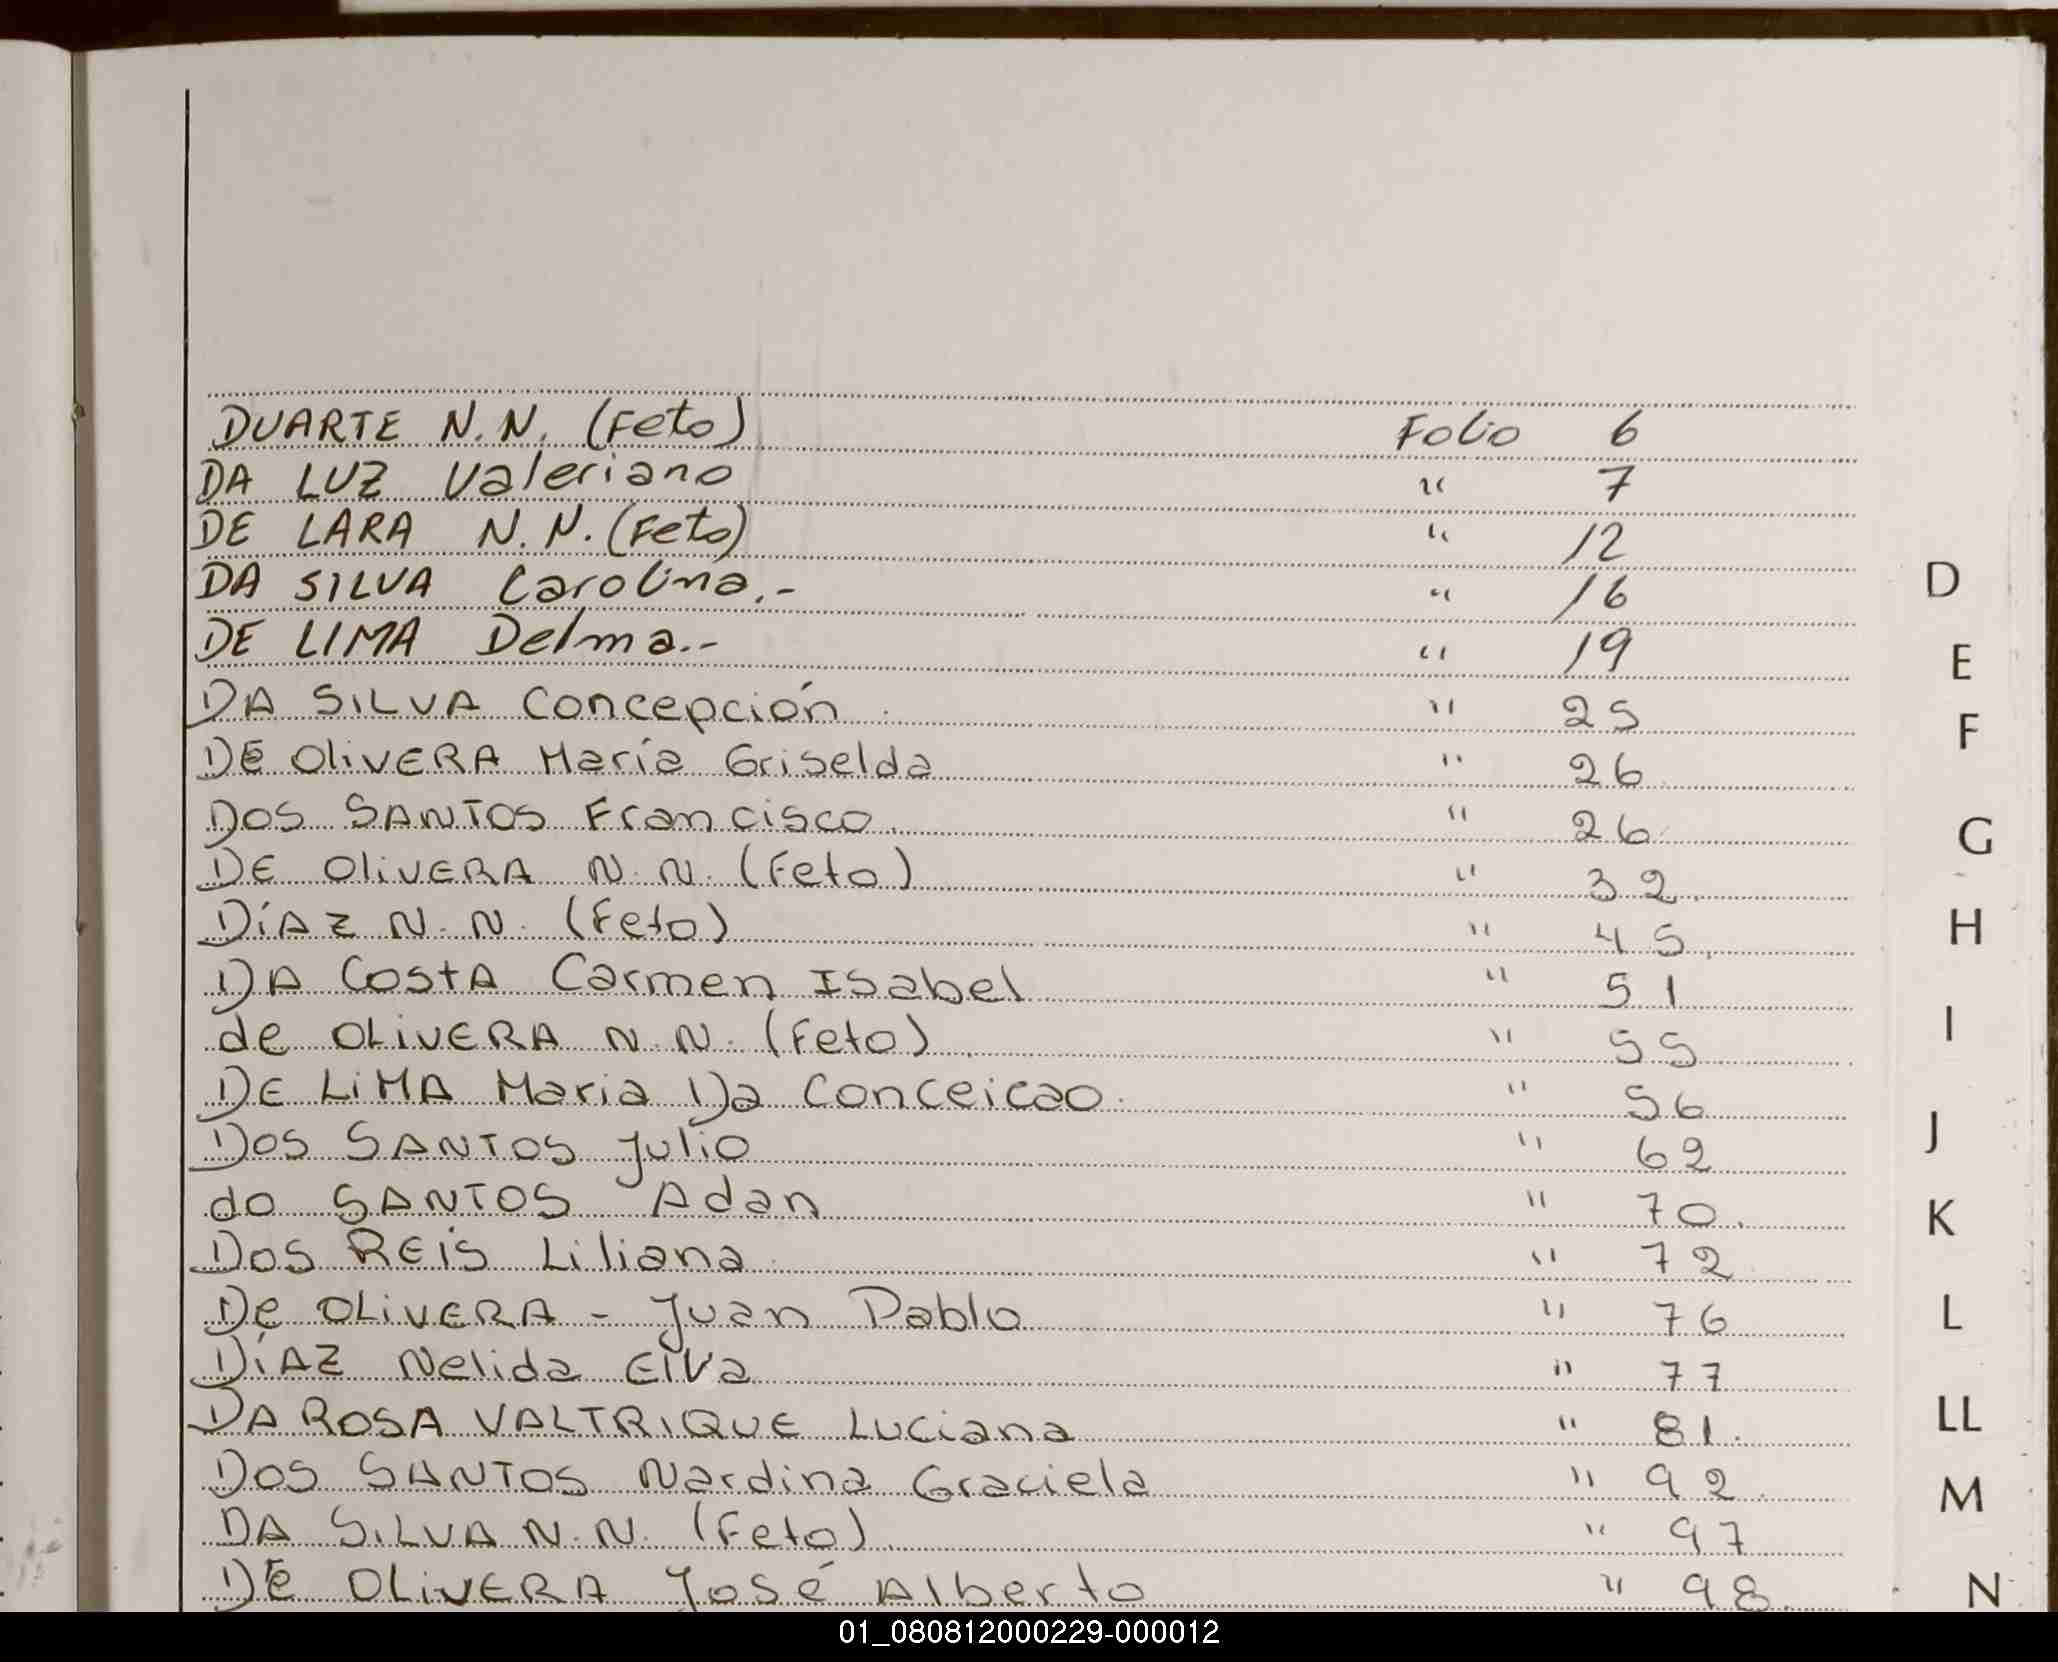 DUARTE N.N. (Feto) Folio 6
DA LUZ Valeriano " 7
DE LARA N.N. (Feto) " 12
DA SILVA Carolina.- " 16
DE LIMA Delma.- " 19
DA SILVA Concepción " 25
DE OliVERA María Griselda " 26
DOS SANTOS Francisco. " 26
DE OliVERA N.N. (Feto) " 32.
DíAZ N.N. (Feto) " 45.
DA COSTA Carmen Isabel " 51
de OLiVERA N.N. (Feto). " 55
DE LiMA Maria Da Conceicao. " 56
DOS SANTOS Julio " 62
do SANTOS Adan " 70.
DOS REiS Liliana " 72
De OLiVERA - Juan Pablo " 76
DíAZ Nelida Elva " 77
DA ROSA VALTRIQUE Luciana " 81.
DOS SANTOS Nardina Graciela " 92.
DA SiLVA N.N. (Feto). " 97
DE OLiVERA José Alberto " 98.
D
E
F
G
H
I
J
K
L
LL
M
N
01_080812000229-000012